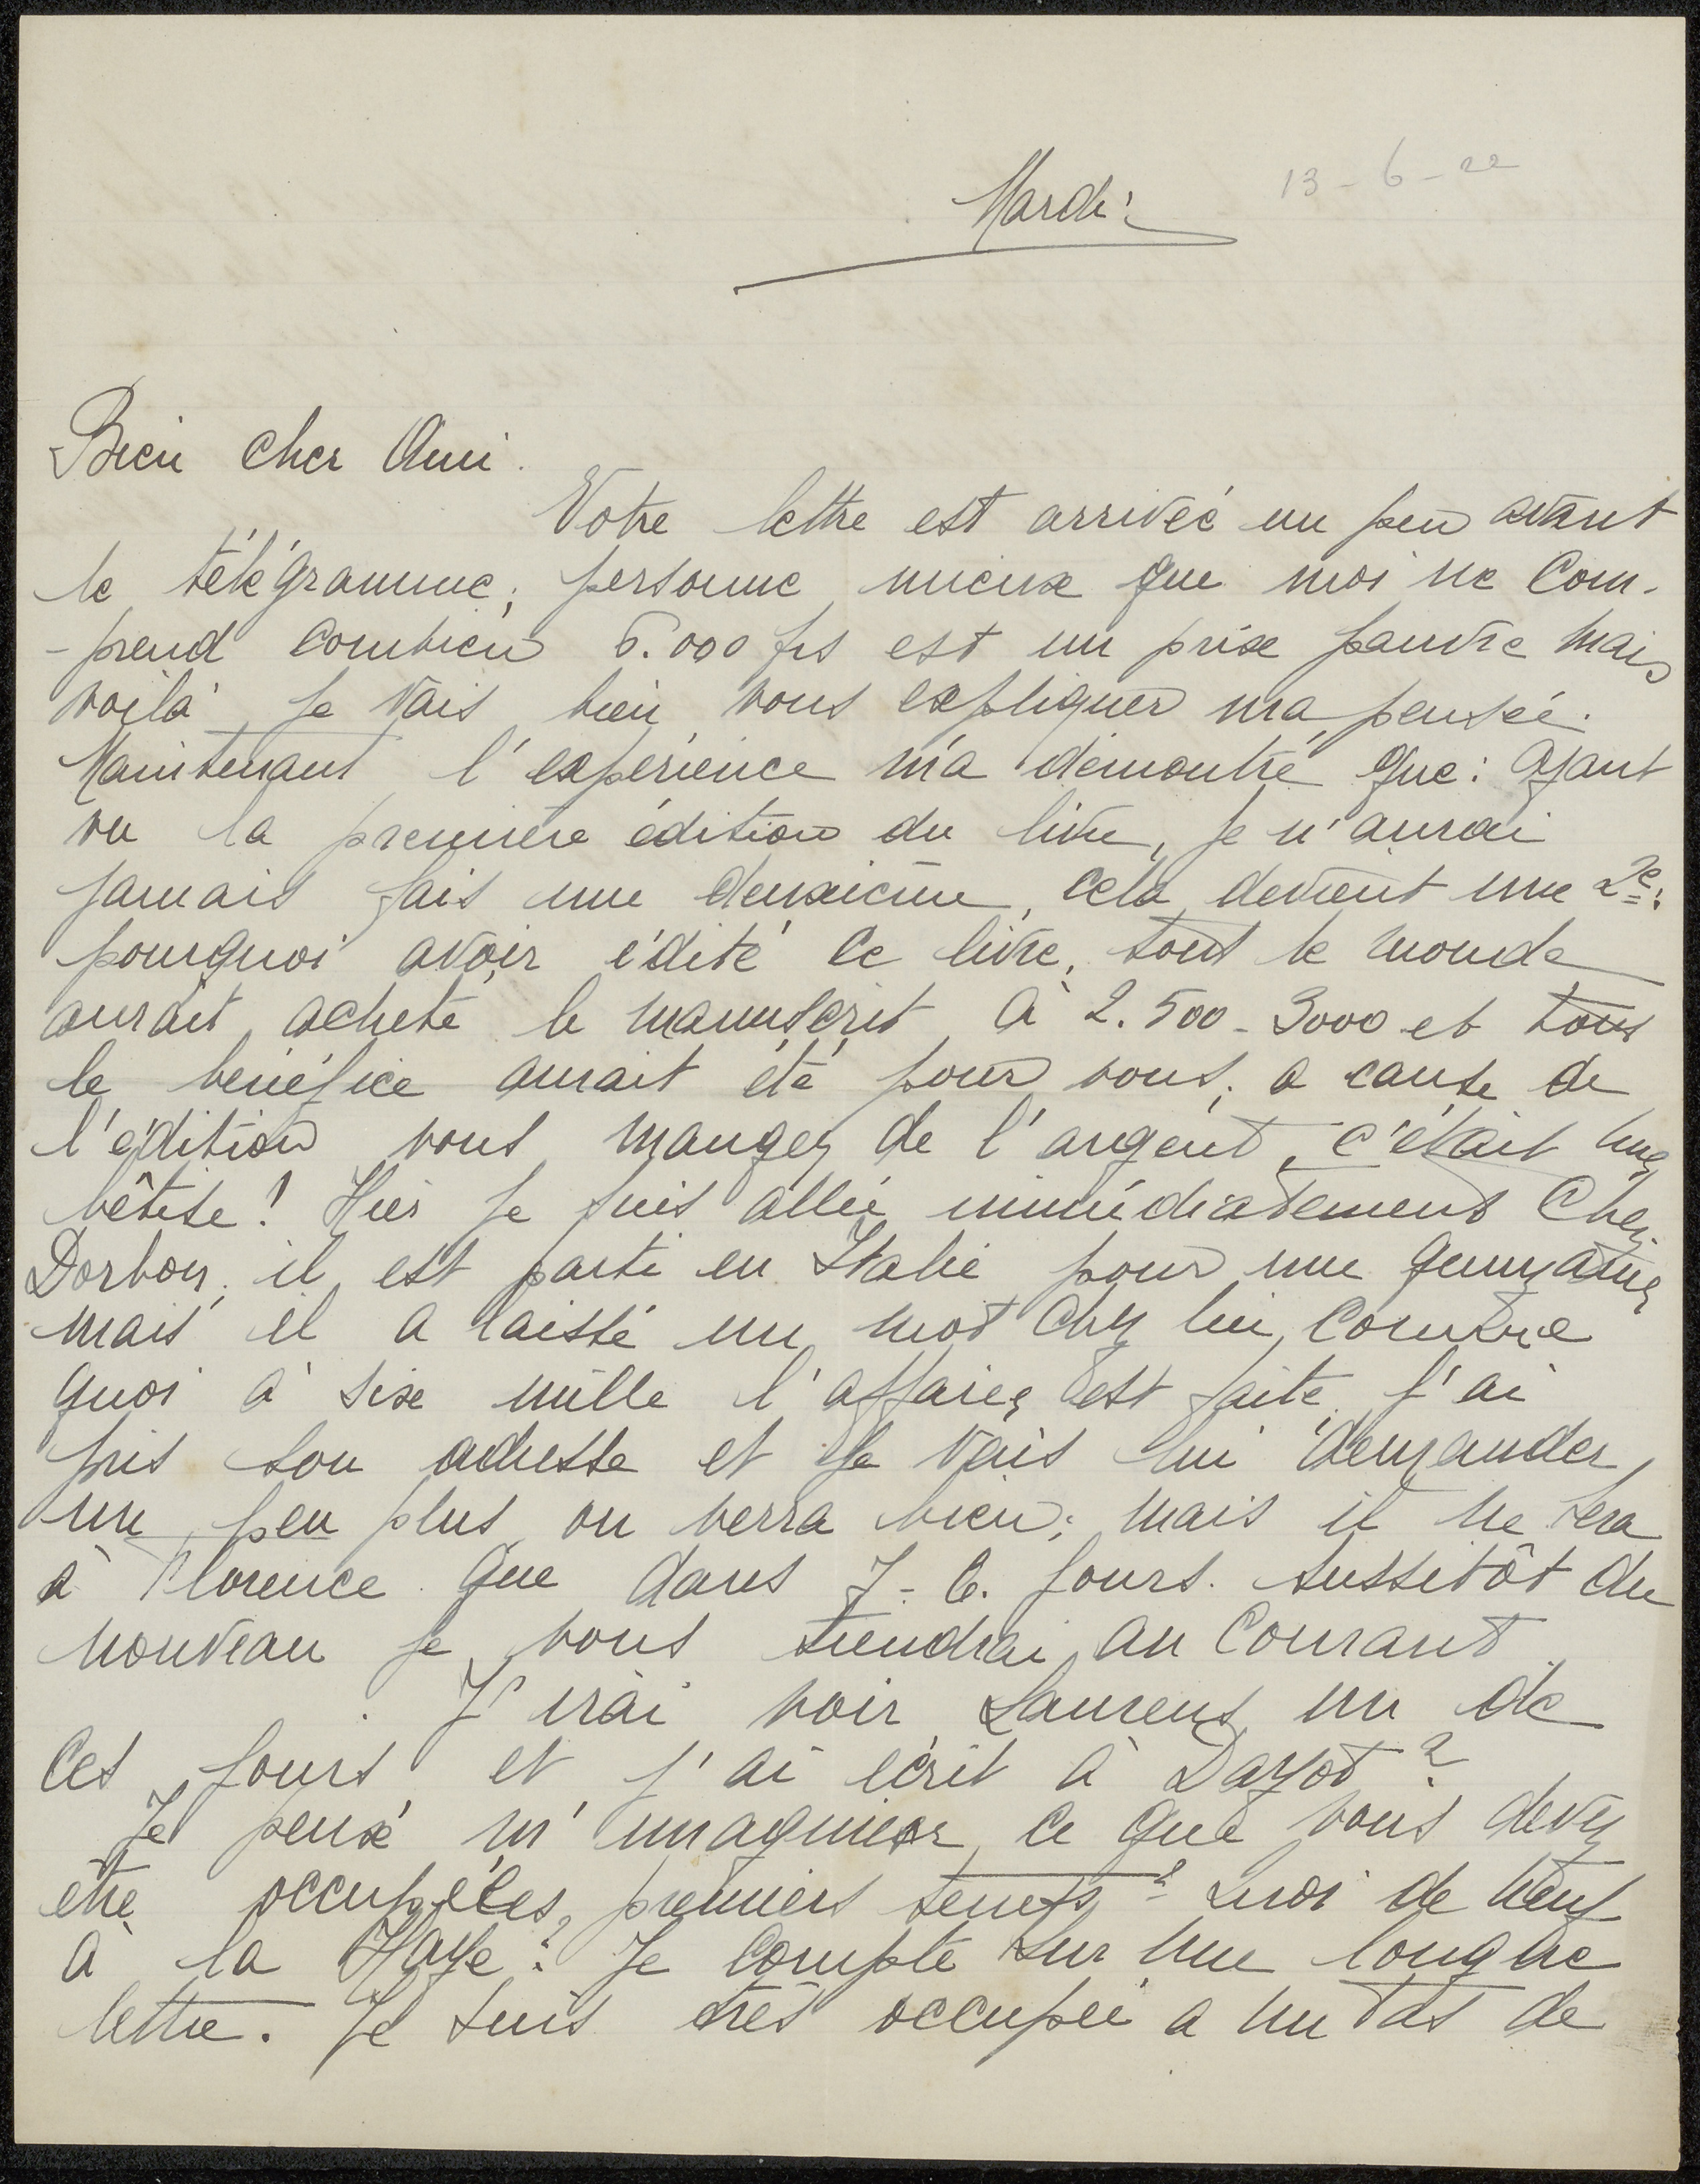 Mardi 13-6-22
Bien cher Ami.
Votre lettre est arrivée un peu avant
le télégramme; personne mieux que moi ne com-
-prend combien 6.000 frs est un prix pauvre mais
voilà je vais bien vous expliquer ma pensée.
Maintenant l'expérience m'a démontré que: ayant
vu la première édition du livre, je n'aurai
jamais fais une deuxième, cela devient une 2e:
pourquoi avoir édité ce livre, tout le monde
aurait acheté le manuscrit à 2.500-3000 et tous
le bénéfice aurait été pour vous; a cause de
l'édition vous mangez de l'argent, c'était une
bêtise! Hier je suis allée immédiatement chez
Dorbon, il est parti en Italie pour une quinzaine
mais il a laissé un mot chez lui, comtre
quoi à six mille l'affaire est faite, j'ai
pris son adresse et je vais lui demander
un peu plus on verra bien; mais il ne sera
à Florence que dans 7-6. jours. Aussitôt du
nouveau je vous tiendrai au courant.
J'irai voir Laurens un de
ces jours et j'ai écrit à Dayot?
Je peux m'imaginier ce que vous devez
être occupé ces premiers temps? Quoi de neuf
à la Haye? Je compte sur une longue
lettre. Je suis très occupée a un tas de